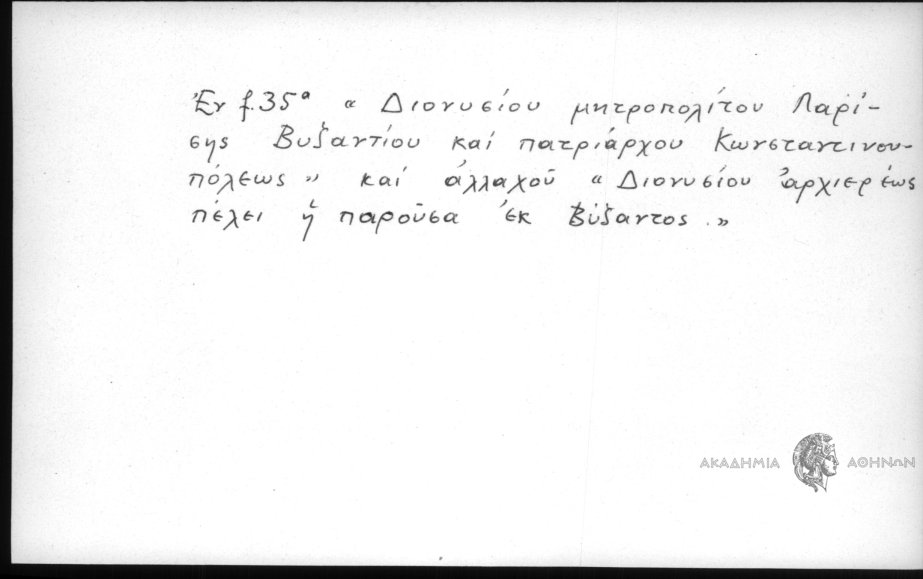 Ἐν f.35α « Διονυσίου μητροπολίτου Λαρί-
σης Βυζαντίου καί πατριάρχου Κωνσταντινου-
πόλεως » καί ἀλλαχοῦ « Διονυσίου ἀρχιερέως
πέλει ἡ παροῦσα ἐκ Βύζαντος .»
ΑΚΑΔΗΜΙΑ ΑΘΗΝΩΝ